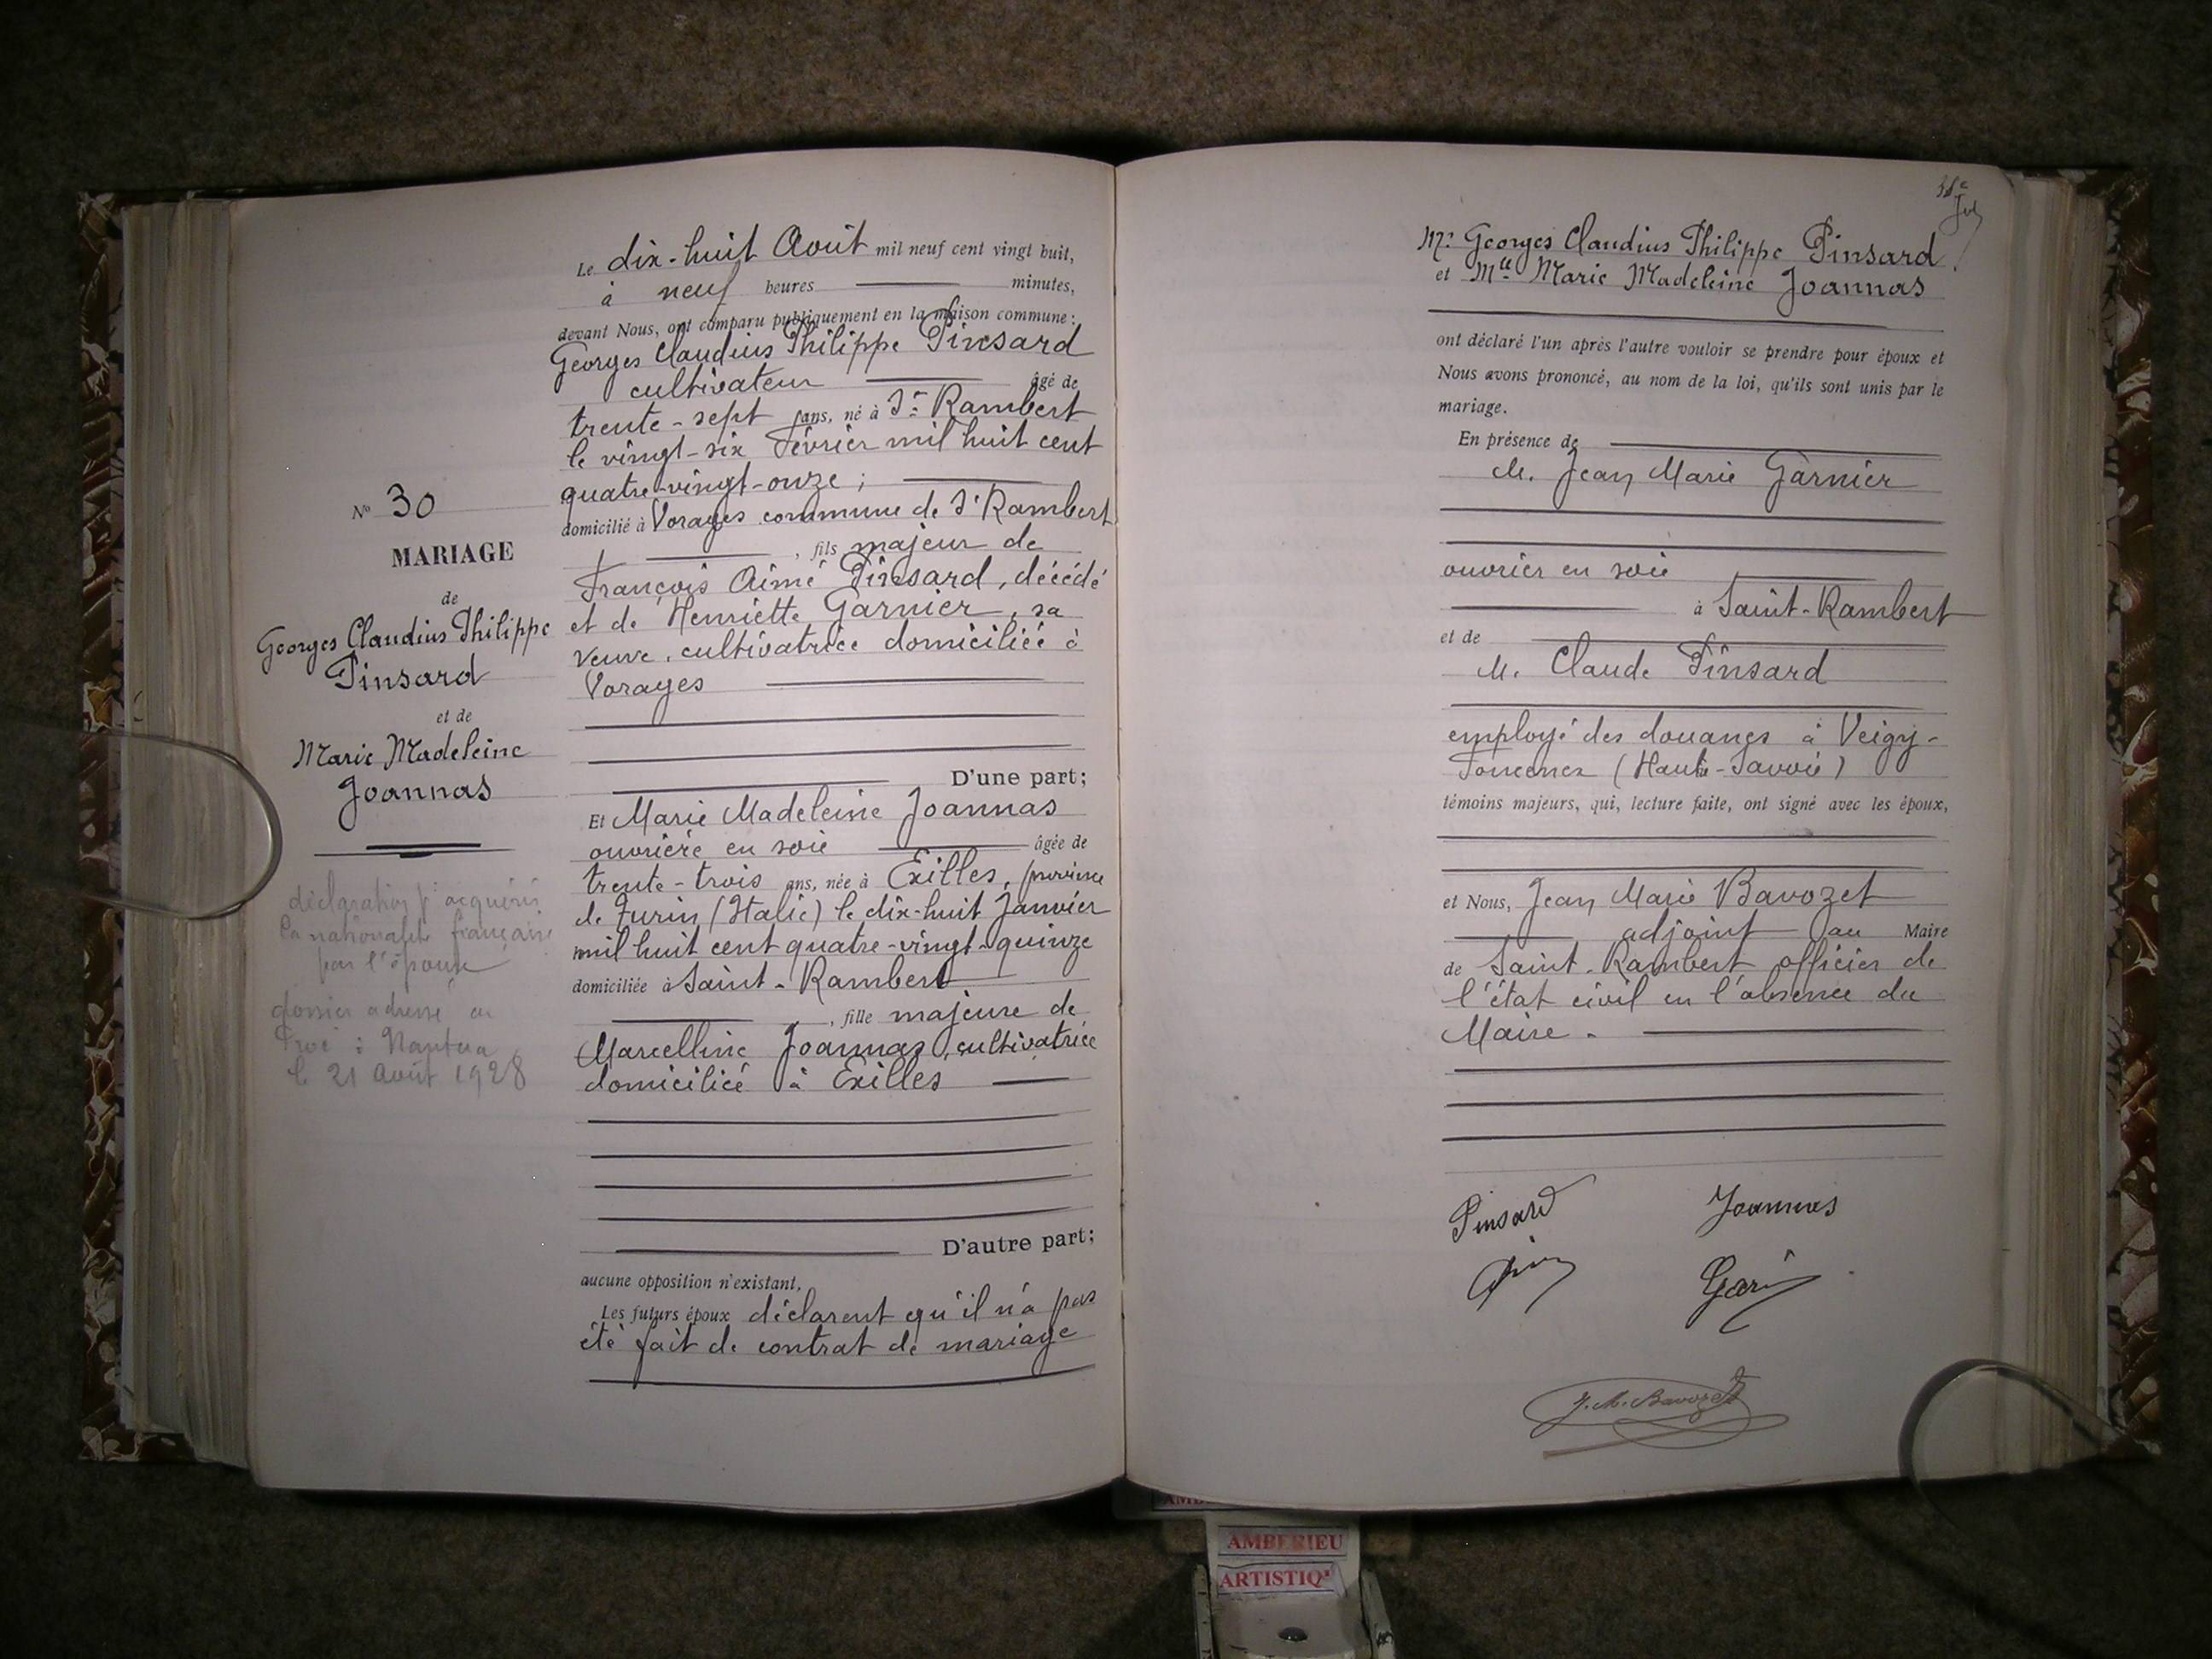 Le dix-huit Août mil neuf cent vingt huit,
à neuf heures minutes,
devant Nous, ont comparu publiquement en la maison commune:
Georges Claudius Philippe Pinsard
cultivateur âgé de
trente-sept ans, né à St Rambert
le vingt-six Février mil huit cent
quatre-vingt-onze ;
domicilié à Vorages commune de St Rambert
, fils majeur de
François Aimé Pinsard, décédé
et de Henriette Garnier, sa
veuve, cultivatrice domiciliée à
Vorages
D'une part;
Et Marie Madeleine Joannas
ouvrière en soie âgée de
trente-trois ans, née à Exilles, province
de Turin (Italie) le dix-huit Janvier
mil huit cent quatre-vingt-quinze
domiciliée à Saint-Rambert
, fille majeure de
Marcelline Joannas, cultivatrice
domiciliée à Exilles
D'autre part;
aucune opposition n'existant,
Les futurs époux déclarent qu'il n'a pas
été fait de contrat de mariage
No 30
MARIAGE
de
Georges Claudius Philippe
Pinsard
et de
Marie Madeleine
Joannas
déclaration d'acquérir
la nationalité française
par l'épouse
dossier adressé au
Proc : Nantua
le 21 Août 1928
Mr Georges Claudius Philippe Pinsard
et Mlle Marie Madeleine Joannas
ont déclaré l'un après l'autre vouloir se prendre pour époux et
Nous avons prononcé, au nom de la loi, qu'ils sont unis par le
mariage.
En présence de
M. Jean Marie Garnier
ouvrier en soie
à Saint-Rambert
et de
M. Claude Pinsard
employé des douanes à Veigy-
Foncenex (Haute-Savoie)
témoins majeurs, qui, lecture faite, ont signé avec les époux,
et Nous, Jean Marie Bavozet
adjoint au Maire
de Saint-Rambert officier de
l'état civil en l'absence du
Maire.
Pinsard Joannas
J. M. Bavozet
AMBERIEU
ARTISTIQ